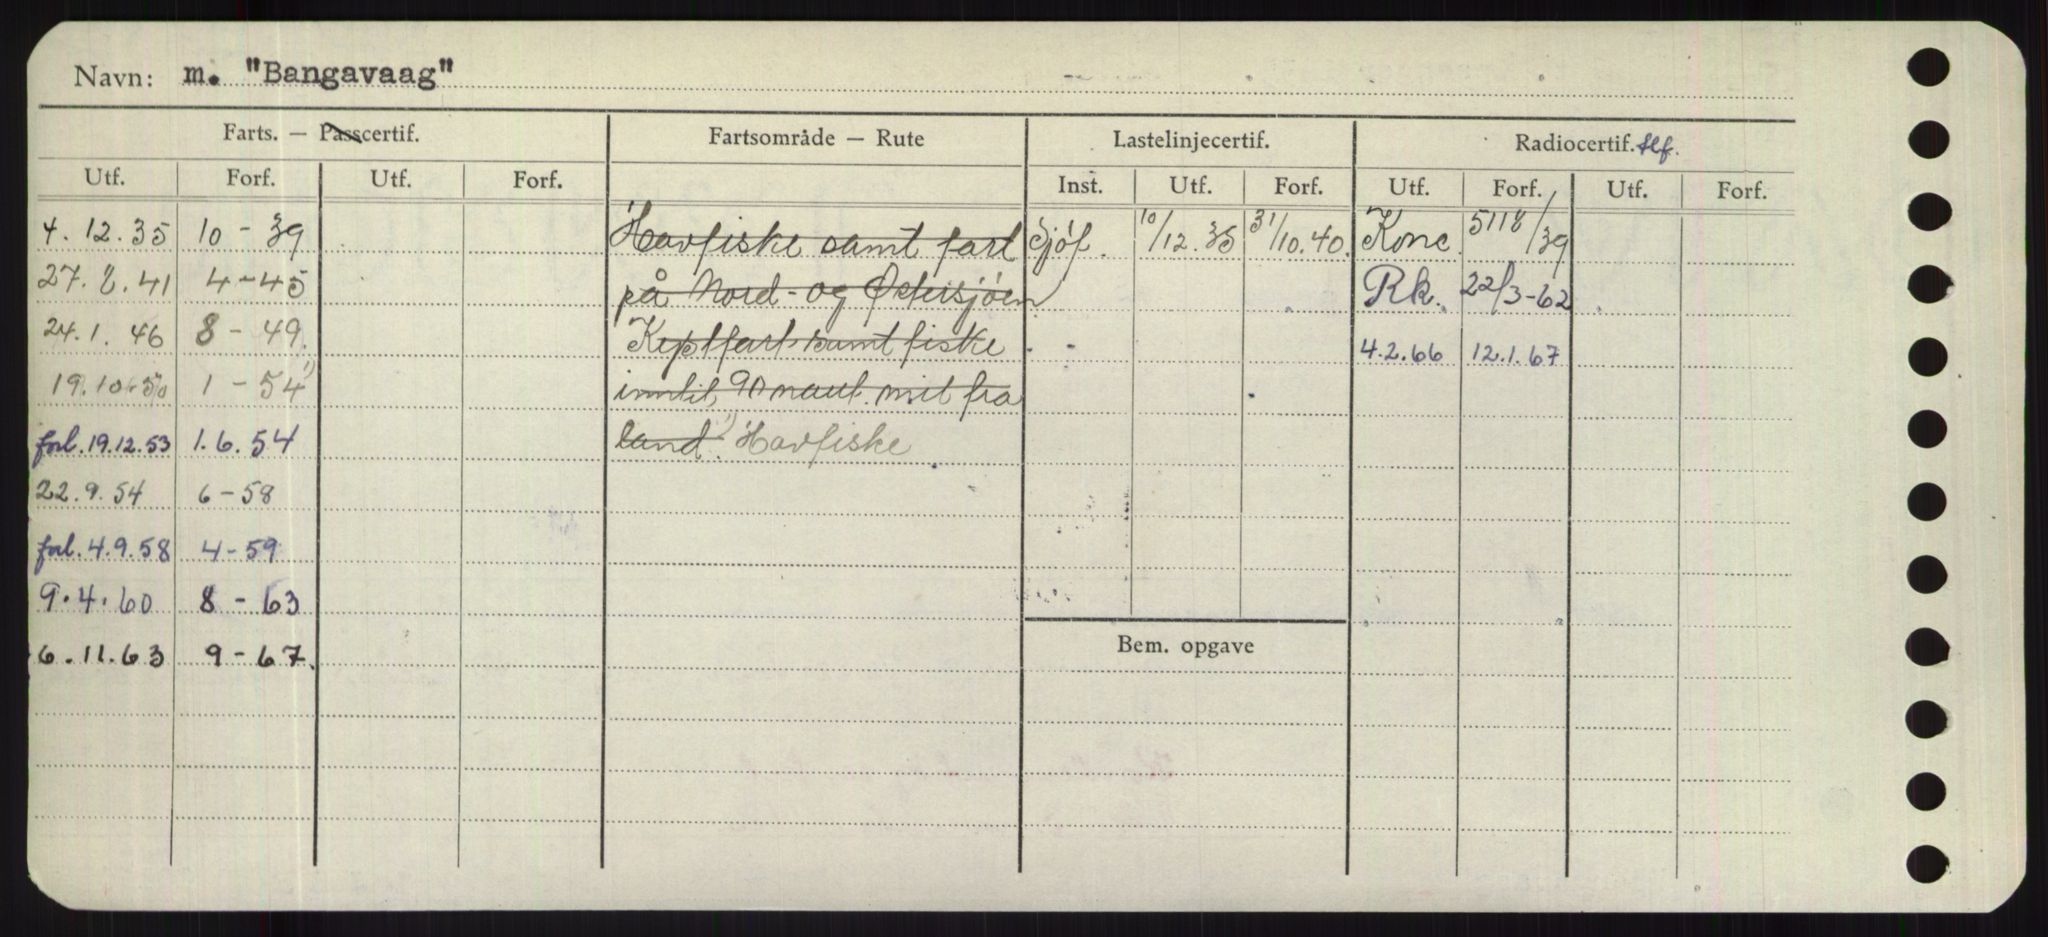 Navn: m. "Bangavaag"
Farts. — Passcertif. Fartsområde — Rute Lastelinjecertif. Radiocertif. tlf.
Utf. Forf. Utf. Forf. Inst. Utf. Forf. Utf. Forf. Utf. Forf.
4. 12. 35 10 - 39 Havfiske samt fart Sjöf. 10/12. 35 31/10. 40. Konc. 5118/39
27. 8. 41 4 - 45 på Nord- og Østersjöen Rk. 22/3-62
24. 1. 46 8 - 49. Kystfart samt fiske 4.2.66 12.1.67
19. 10. 50 1 - 54 1) inntil 90 naut. mil fra
forl. 19.12.53 1. 6. 54 land. 1) Havfiske
22. 9. 54 6 - 58
forl. 4.9.58 4 - 59
9. 4. 60 8 - 63
6. 11. 63 9 - 67.
Bem. opgave